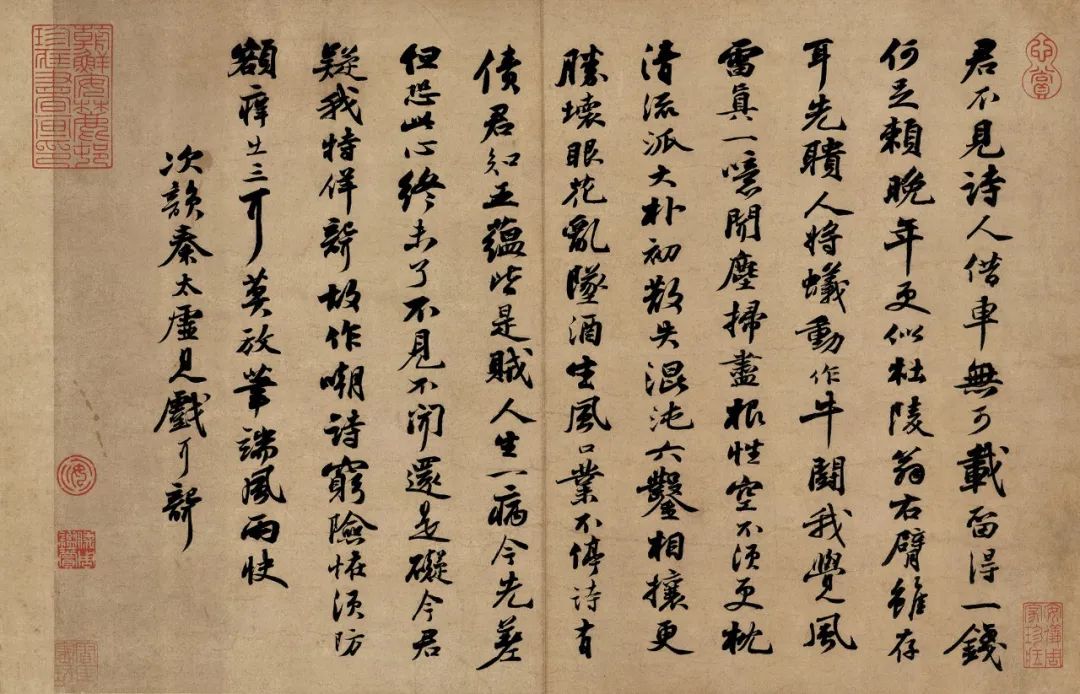 君不見詩人借車無可載留得一錢
何足賴晚年更似杜陵翁右臂雖存
耳先聵人將蟻動作牛鬪我覺風
雷真一噫聞塵掃盡根性空不須更枕
清流派大朴初散失混沌六鑿相攘更
勝壞眼花亂墜酒生風口業不停詩有
債君知五蘊皆是賊人生一病今先差
但恐此心終未了不見不聞還是礙今君
疑我特佯聾故作嘲詩窮險怪須防
額癢出三耳莫放筆端風雨快
次韻秦太虛見戲耳聾
心賞
安儀周家珍藏
朝鮮安麓邨珍藏書畫印